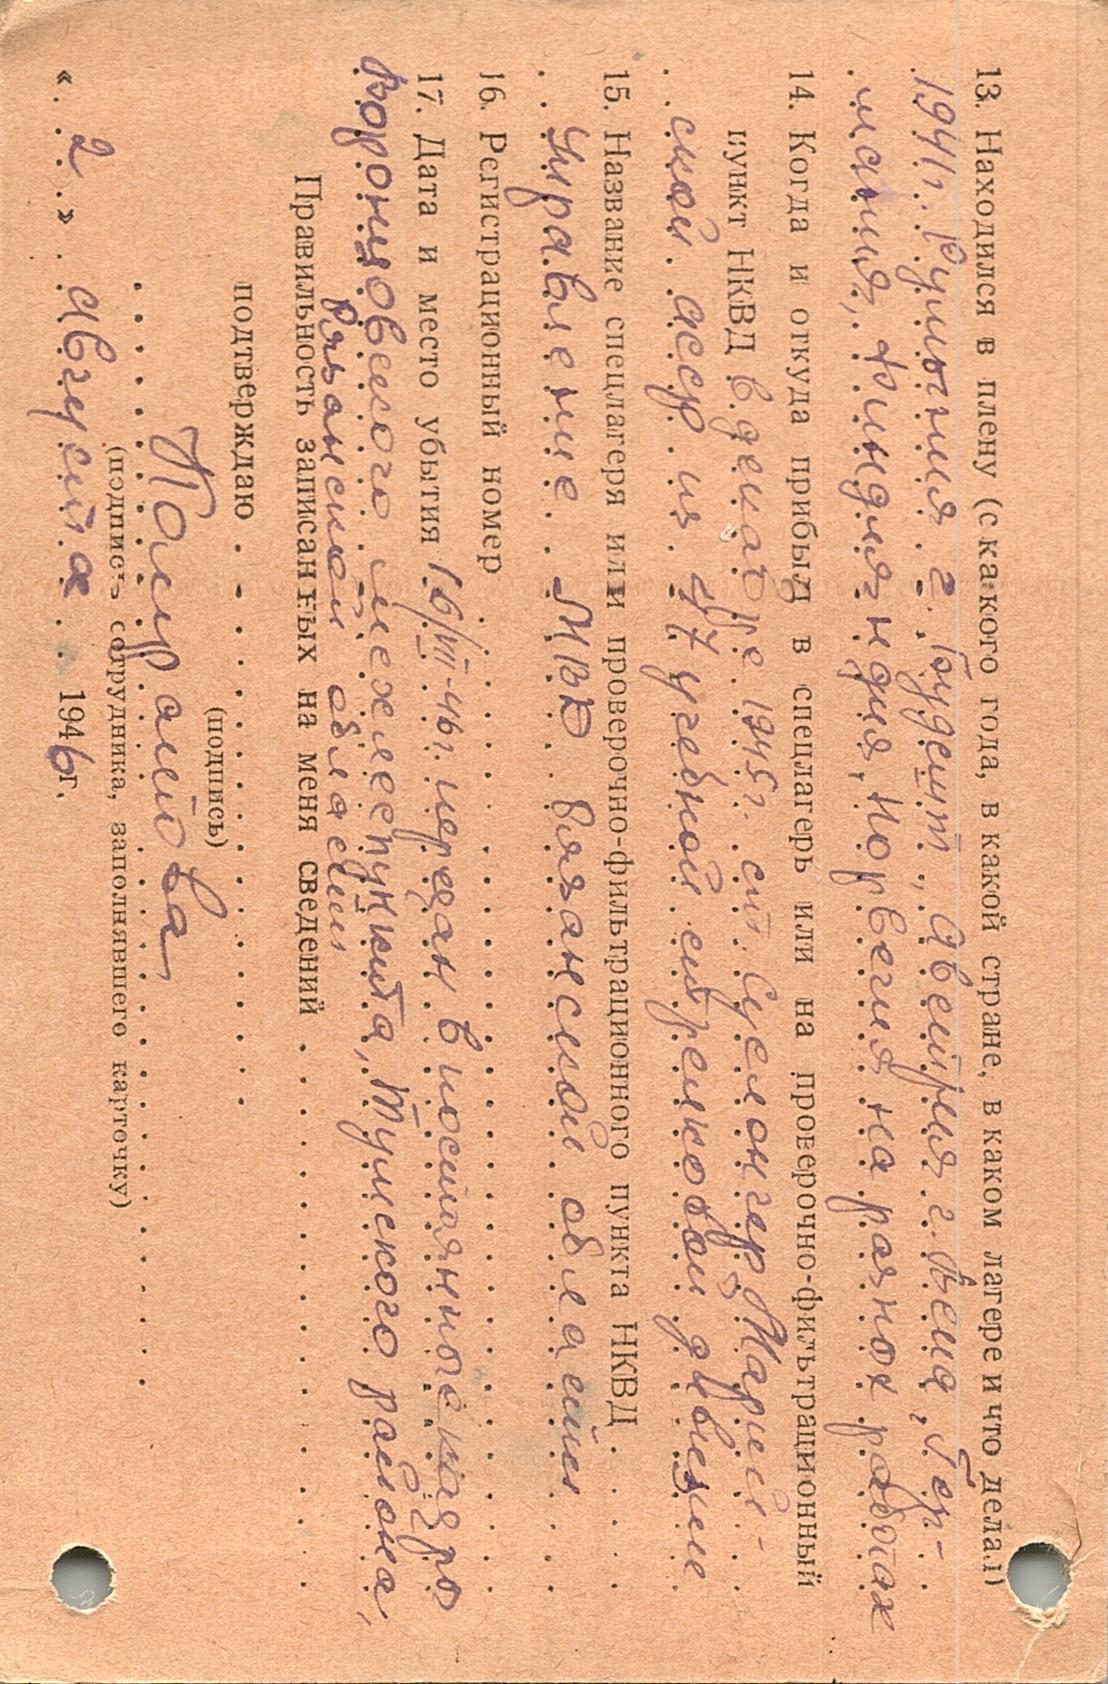 13. Находился в плену (с какого года, в какой стране, в каком лагере и что делал)
1941г. Румыния г. Будешт, Австрия г. Вена, Гер-
мания, Финляндия, Норвегия на разных работах
14. Когда и откуда прибыл в спецлагерь или на проверочно-фильтрационный
пункт НКВД в декабре 1945г. ст. Суслонгер Марий-
ской асср из 47 учебной стрелковой дивизии
15. Название спецлагеря или проверочно-фильтрационного пункта НКВД
Управление МВД Рязанской области
16. Регистрационный номер
17. Дата и место убытия 16/VII-46г. передан в постоянные кадры
Воронцовского мехлеспункта, Тумского района,
Рязанской области
Правильность записанных на меня сведений
подтверждаю
(подпись)
(подпись сотрудника, заполнявшего карточку)
« 2 » августа 1946г.